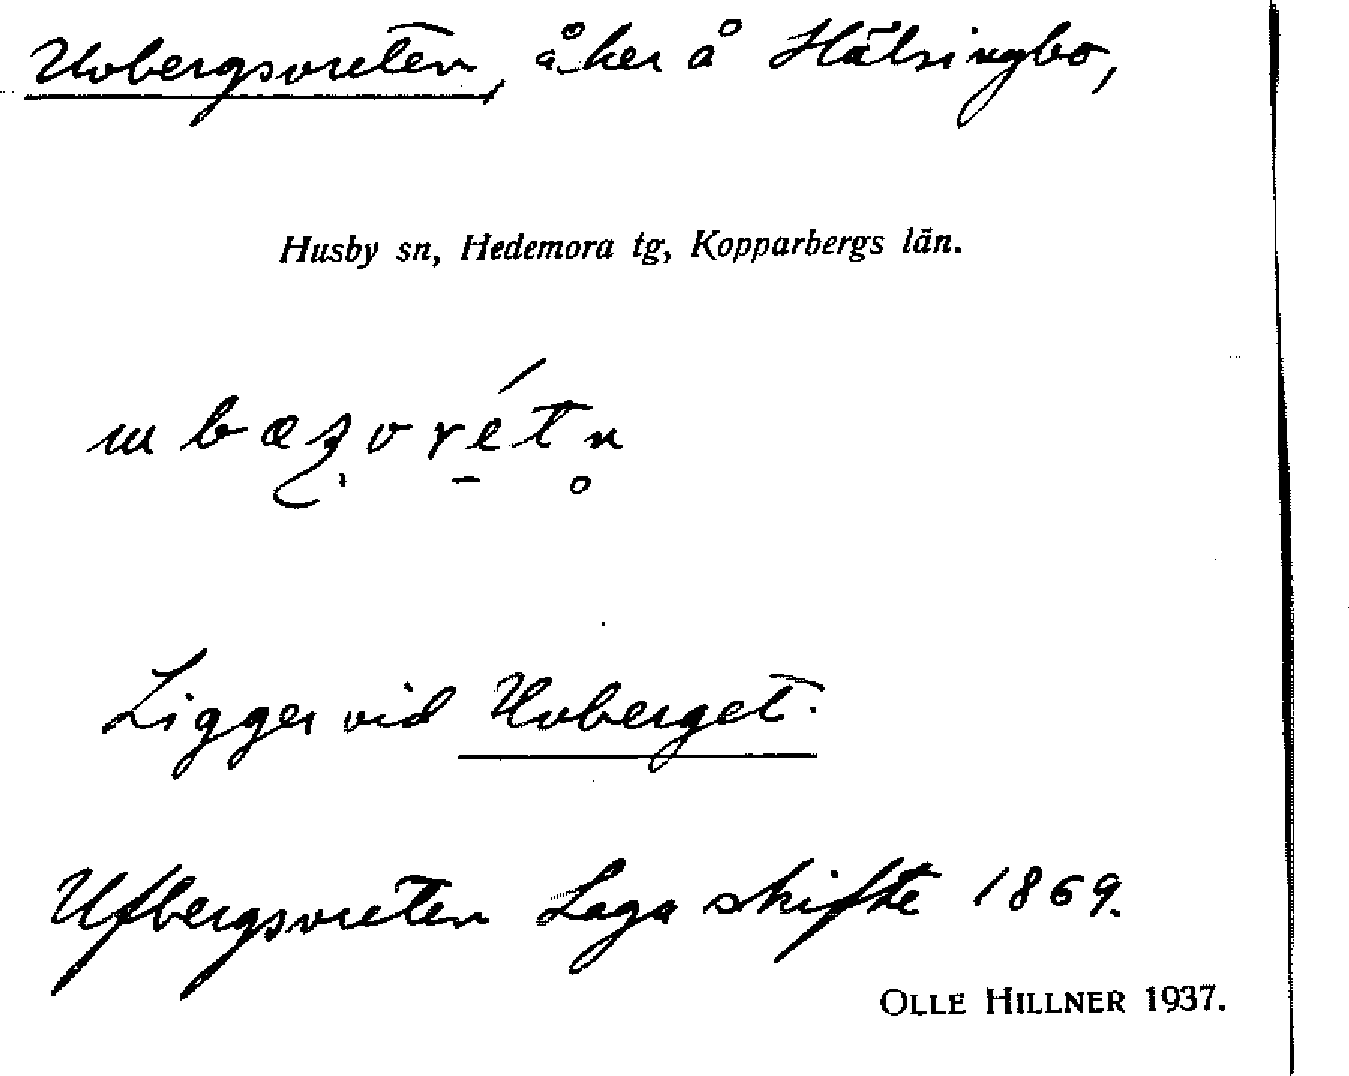 Uvbergsvreten, åker å Hälsingbo,
Husby sn, Hedemora tg, Kopparbergs län.
Ligger vid Uvberget.
Ufbergsvreten Laga skifte 1869.
OLLE HILLNER 1937.